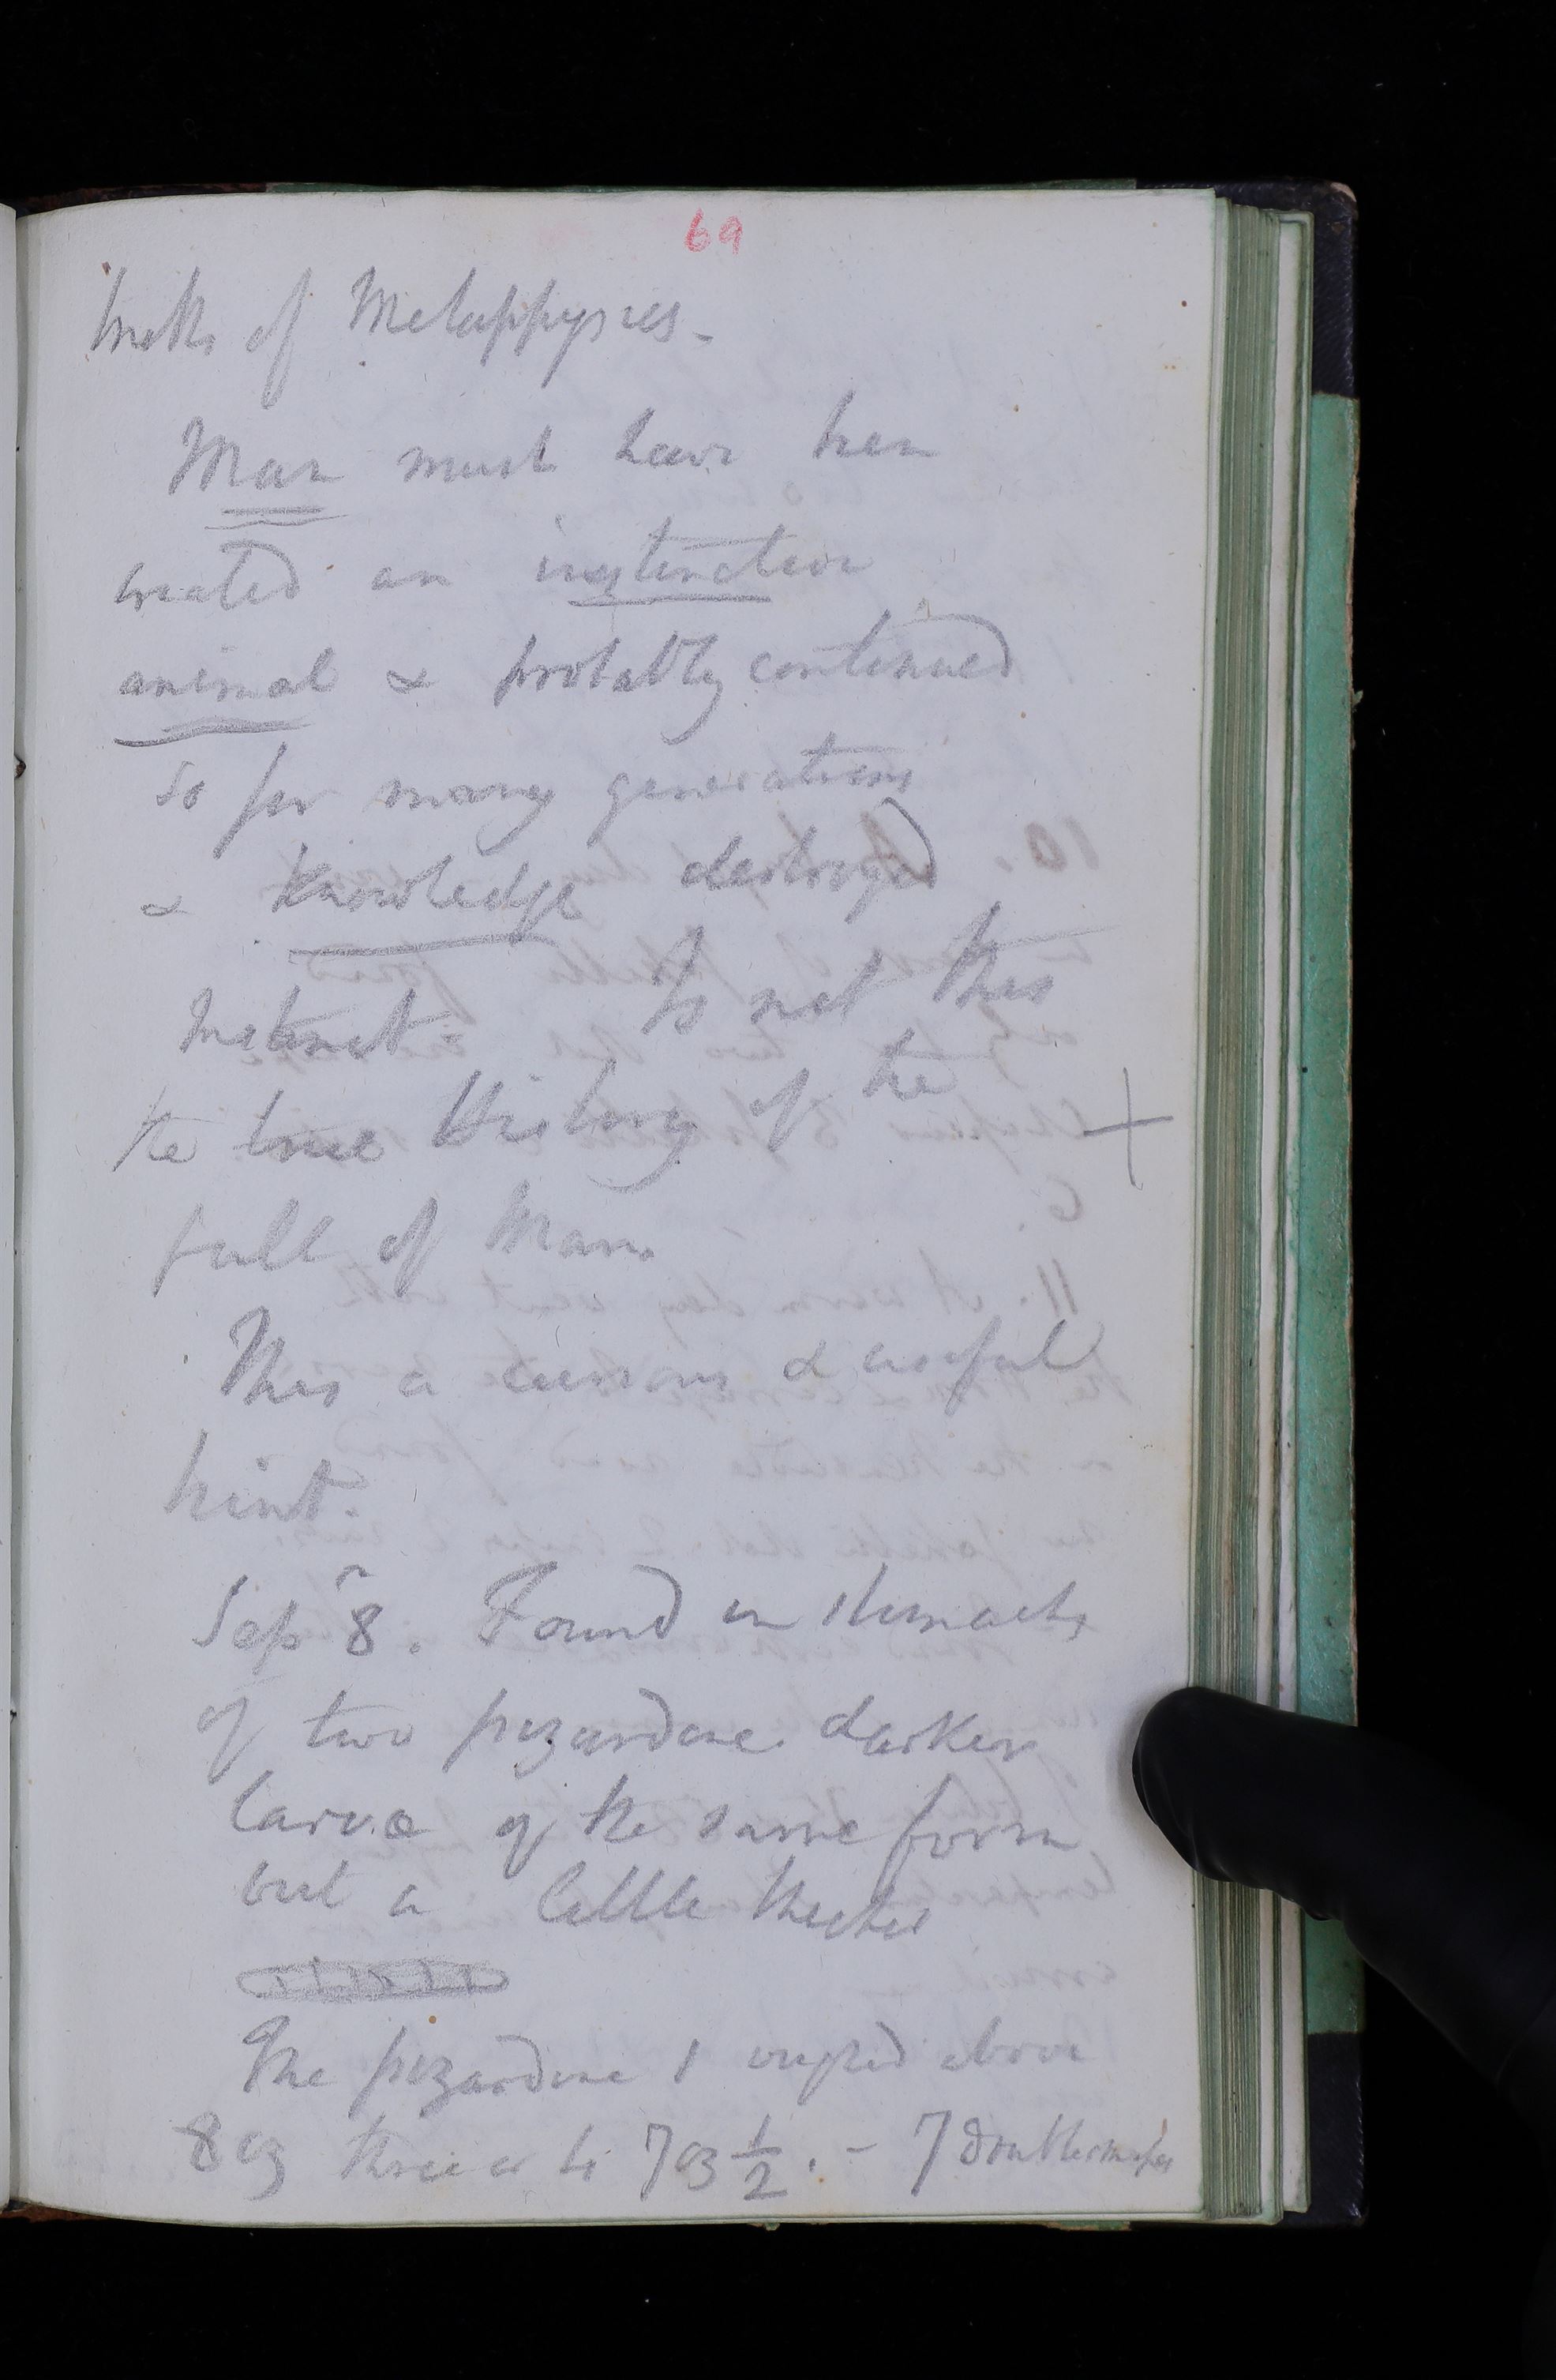 69
truths of Metaphysics -
Man must have been
created an instinctive
animal & probably continued
so for many generations
& Knowledge destroyed
Instinct - Is not this
the true History of the
fall of Man.
+
This a curious & useful
hint.
Sepr 8. Found in stomachs
of two pizardine darker
larvæ of the same form
but a little thicker
The pizardine 1 weighed above
8 oz three or 4 7 oz 1/2. - 7 double snipes